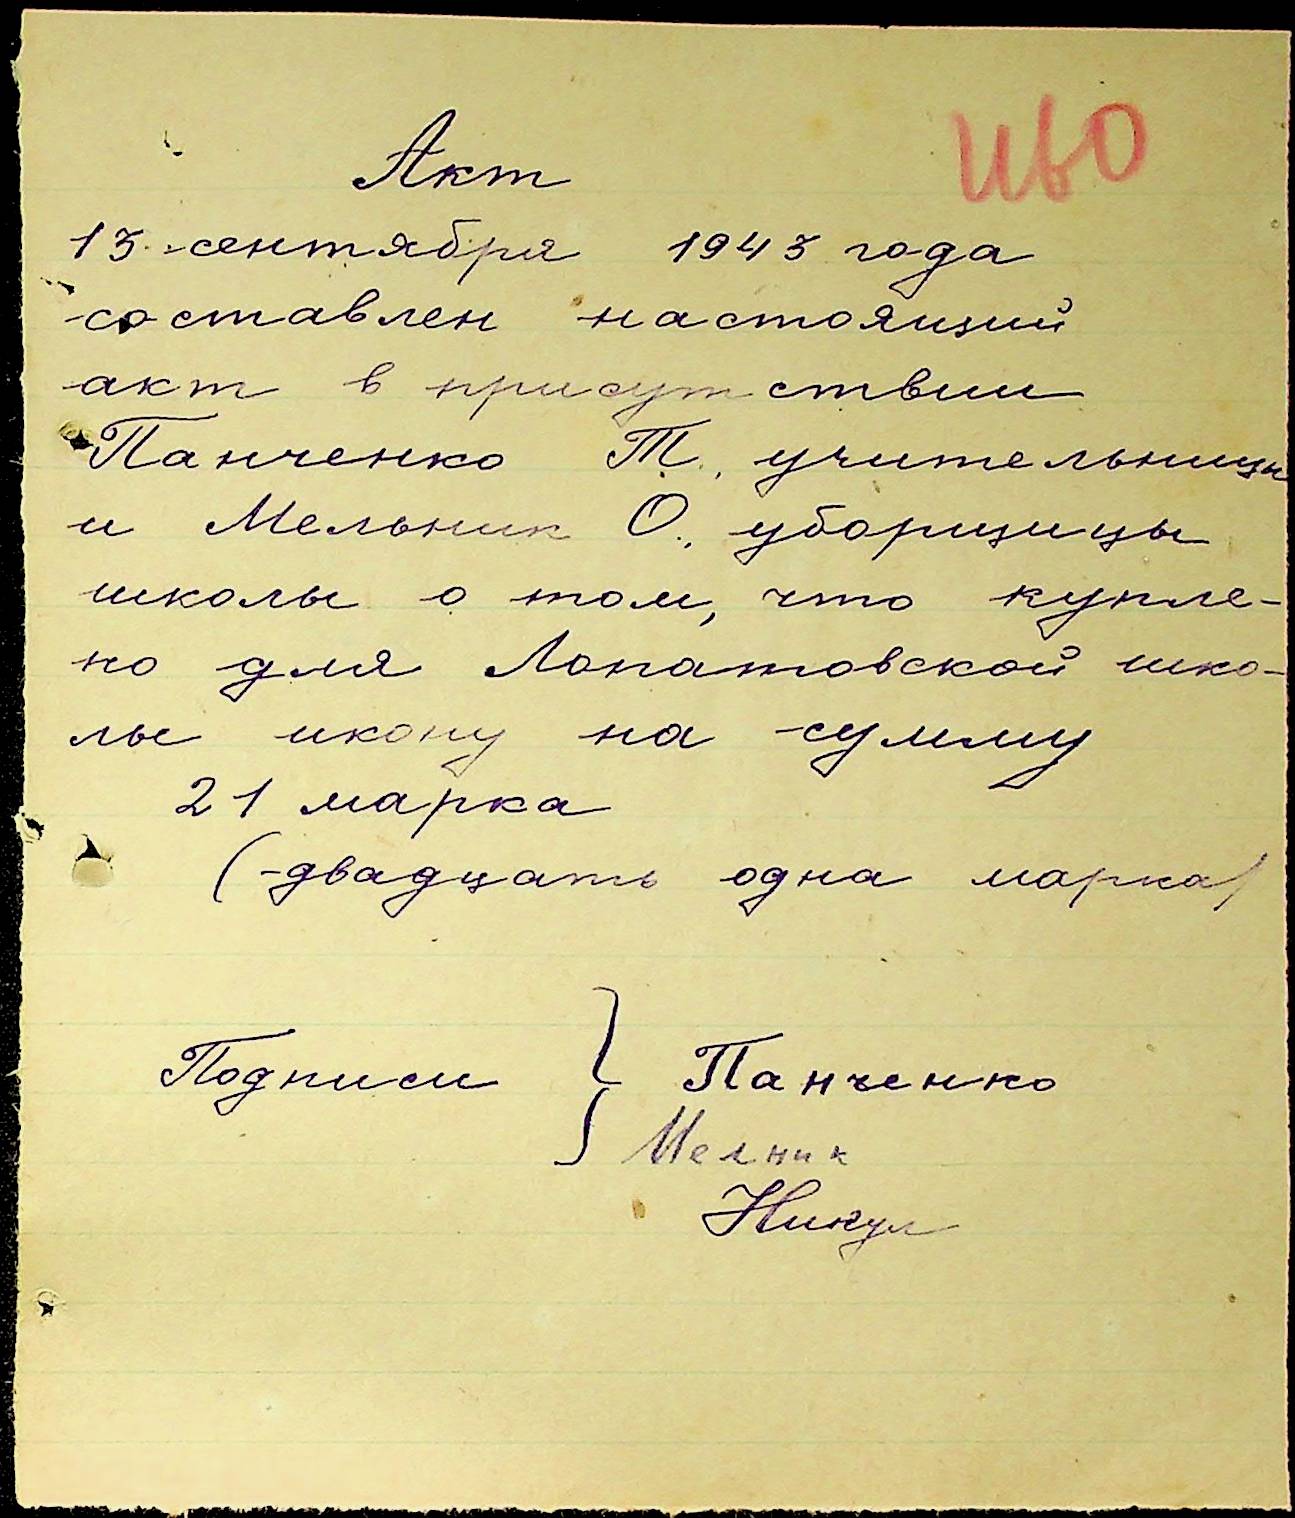 Акт
ИвО
13 сентября 1943 года
составлен настоящий
акт в присутствии
Панченко Т., учительницы
и Мельник О., уборщицы
школы о том, что купле-
но для Лопатовской шко-
лы икону на сумму
21 марка
(двадцать одна марка)
Подписи } Панченко
Мелник
Никул